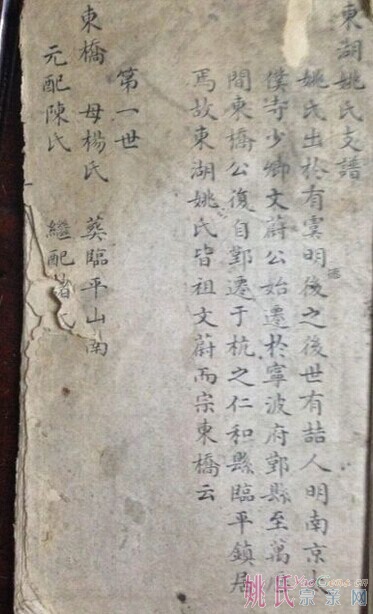 東湖姚氏支譜
姚氏出於有虞明後之後世有喆人明南京
德
僕寺少卿文蔚公始遷於寧波府鄞縣至萬
間東橋公復自鄞遷于杭之仁和縣臨平鎮居
焉故東湖姚氏皆祖文蔚而宗東橋云
第一世
東橋 母楊氏 葬臨平山南
元配陳氏 繼配
姚氏宗亲网